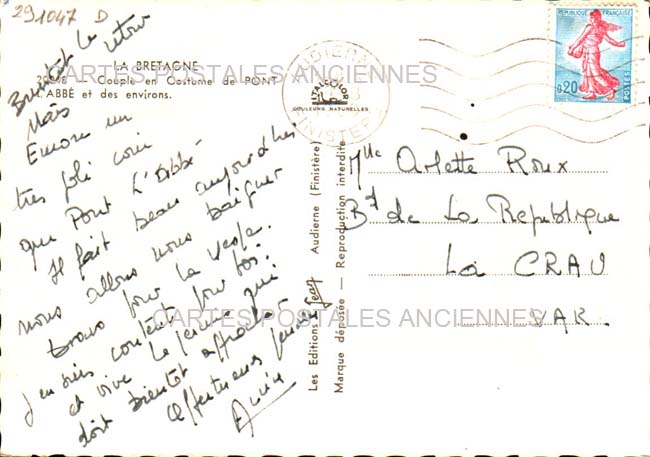 291047 D
Bientôt le
retour
LA BRETAGNE
Couple en Costume de PONT
ABBÉ et des environs.
CARTES POSTALES ANCIENNES
Mais
Encore un
tres joli coin
que Pont L'Abbé
Il fait beau aujourd'hui
nous allons nous baigner
Bravo pour la Vespa.
J'en suis contente pour toi.
et vive le permis qui
doit bientôt
Affectueuses pensées
Annie
AUDIERNE
FINISTERE
ITALCOLOR
COULEURS NATURELLES
REPUBLIQUE FRANÇAISE
0,20
POSTES
Les Editions Jean Audierne (Finistère)
Marque déposée — Reproduction interdite
Mlle Arlette Roux
Bd de La République
La CRAU
VAR.
CARTES POSTALES ANCIENNES